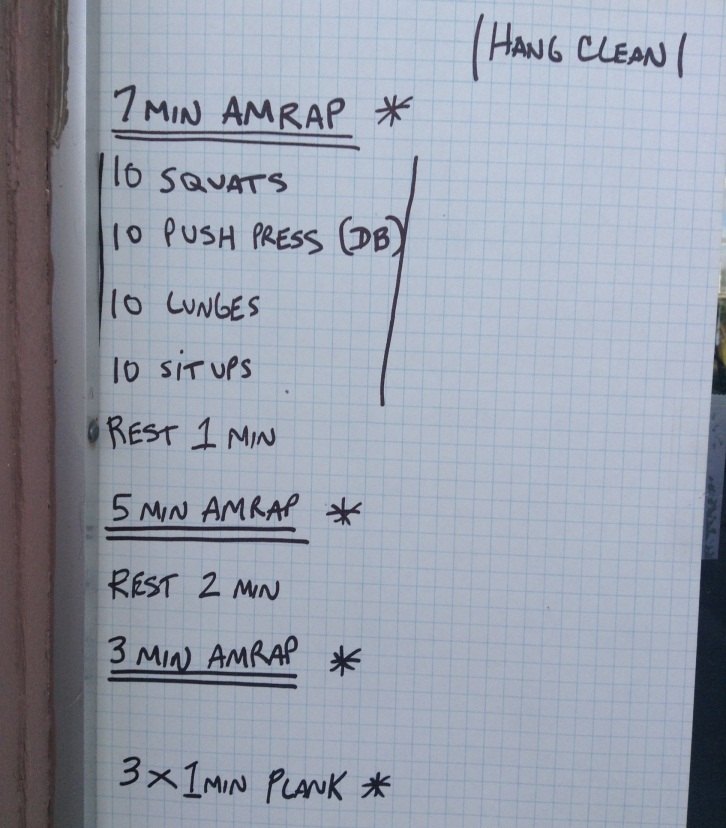 |HANG CLEAN|
7 MIN AMRAP *
10 SQUATS
10 PUSH PRESS (DB)
10 LUNGES
10 SIT UPS
REST 1 MIN
5 MIN AMRAP *
REST 2 MIN
3 MIN AMRAP *
3 × 1 MIN PLANK *